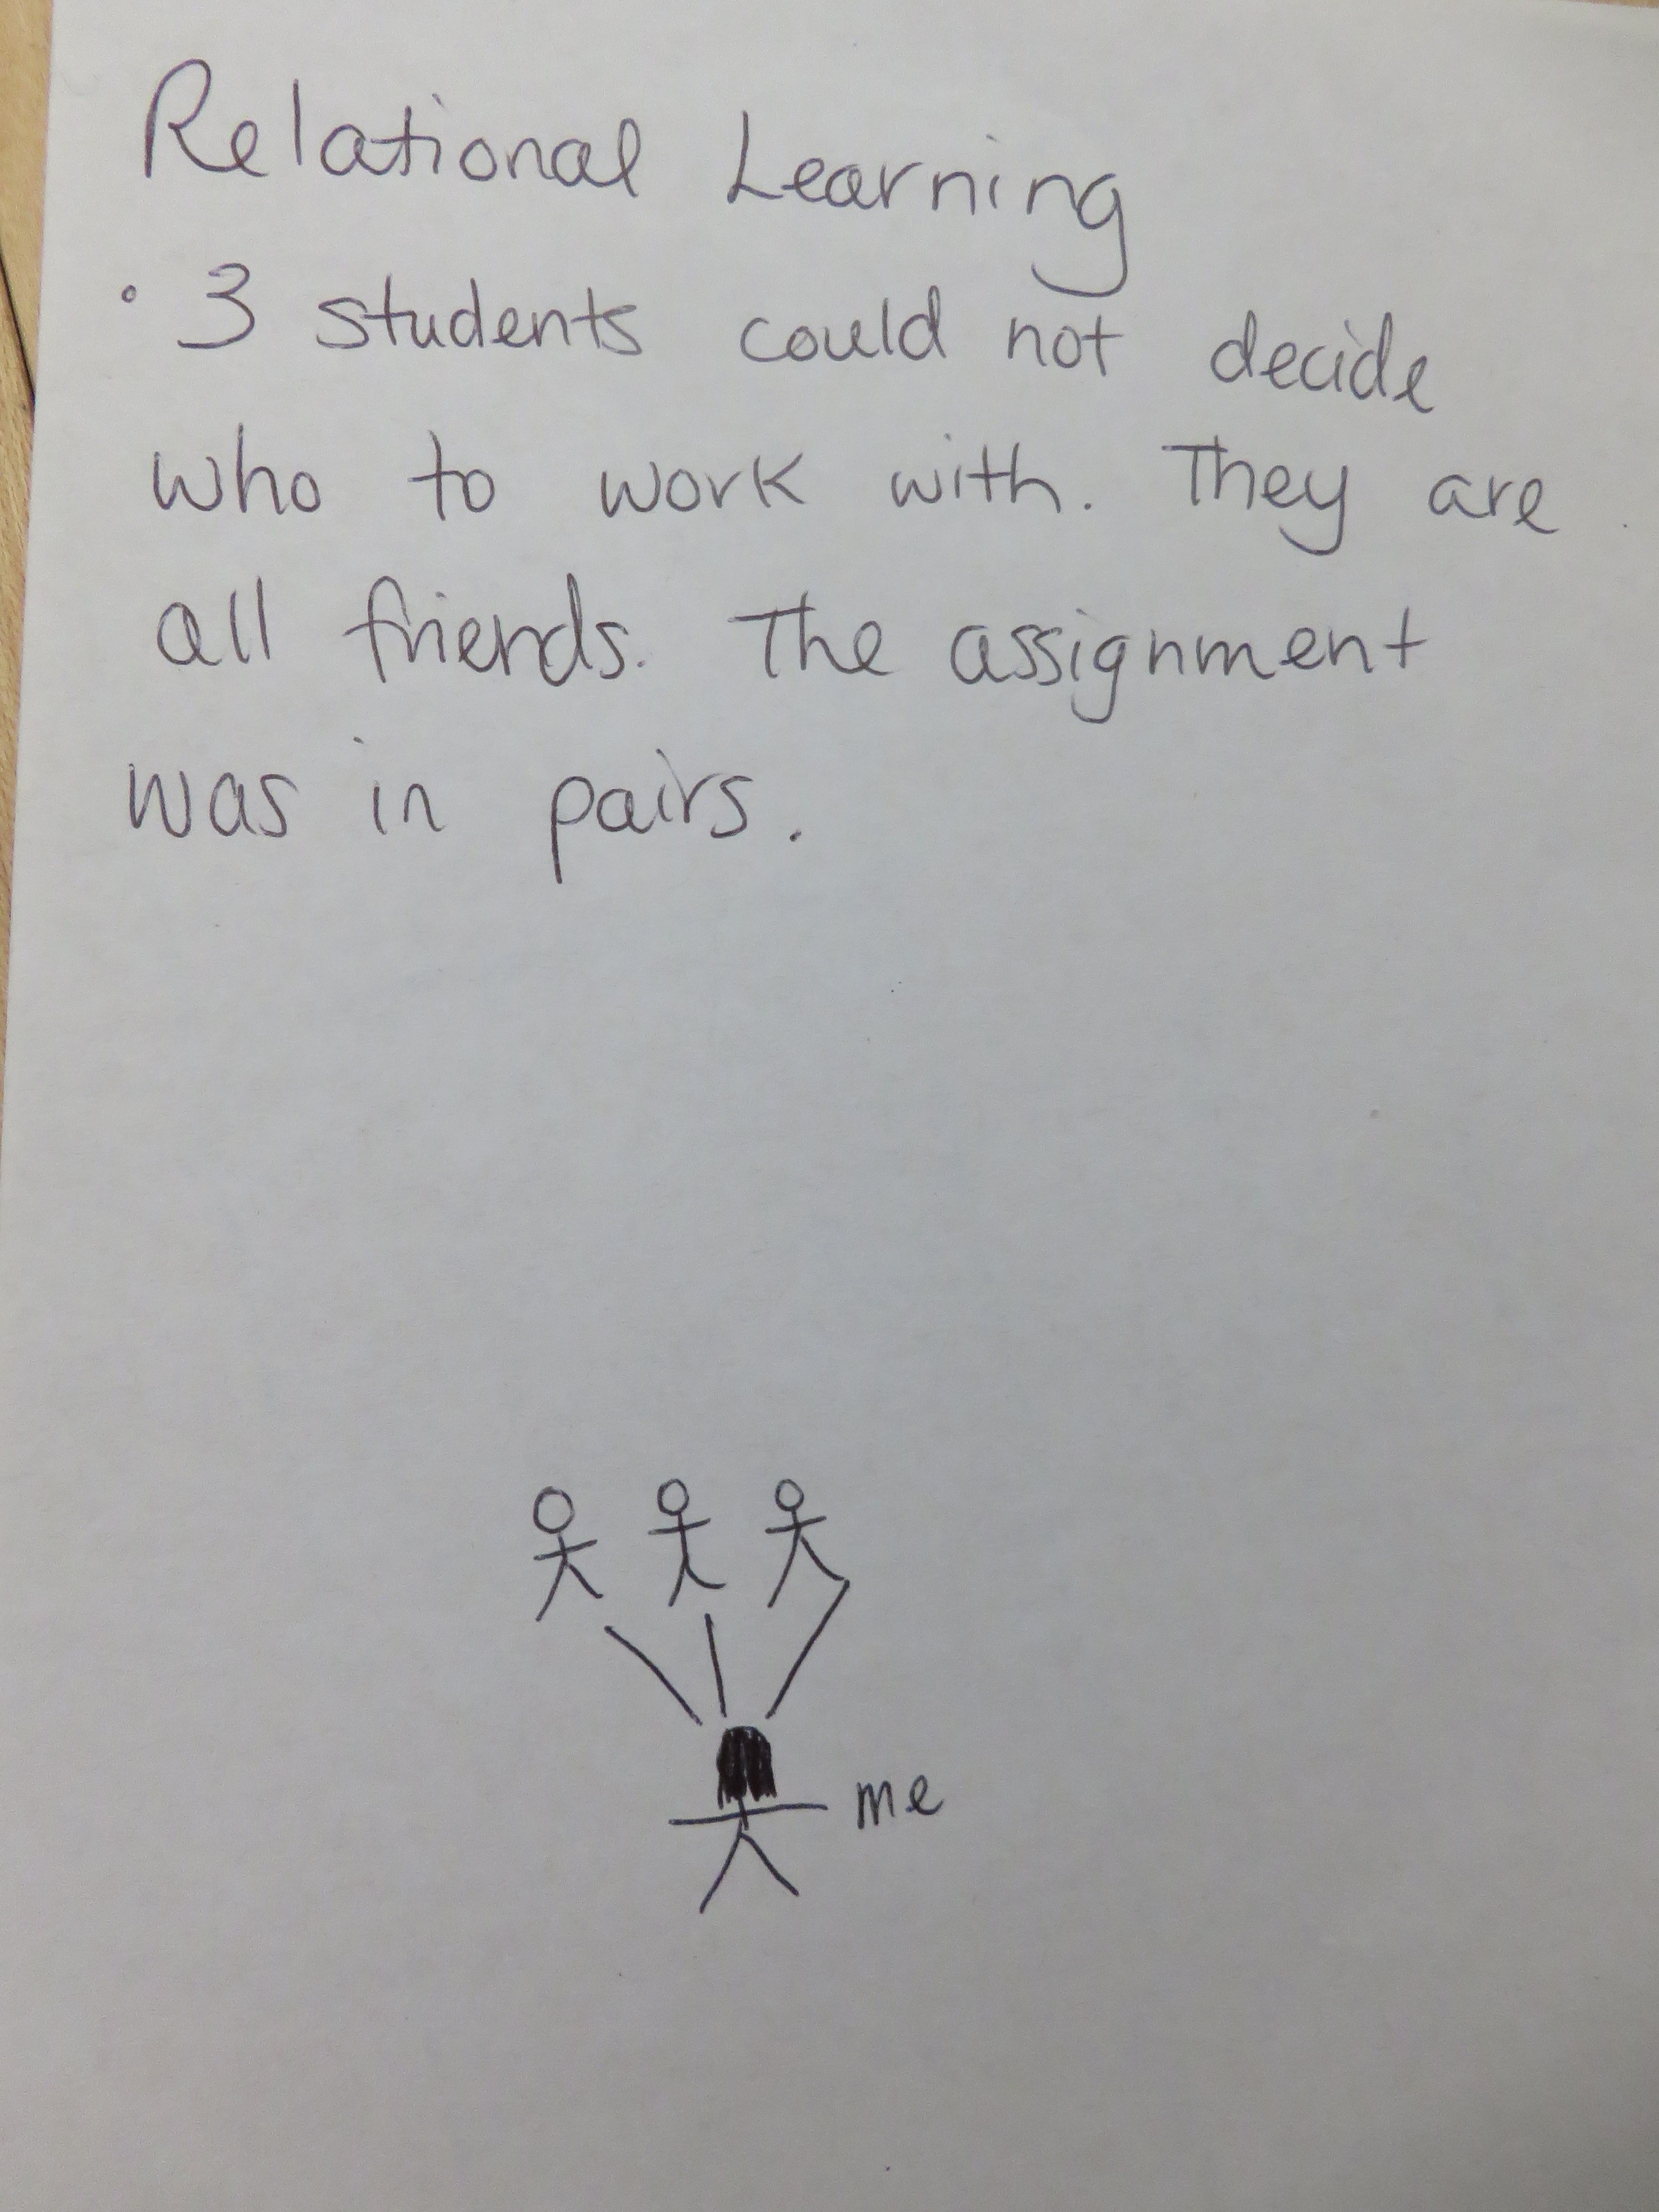 Relational Learning
• 3 students could not decide
who to work with. They are
all friends. The assignment
was in pairs.
me